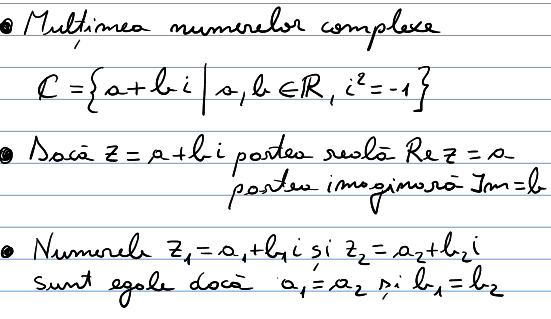 • Mulțimea numerelor complexe
ℂ = {a + bi | a, b ∈ ℝ, i² = -1}
• Dacă z = a + bi partea reală Re z = a
partea imaginară Im = b
• Numerele z₁ = a₁ + b₁i și z₂ = a₂ + b₂i
sunt egale dacă a₁ = a₂ și b₁ = b₂